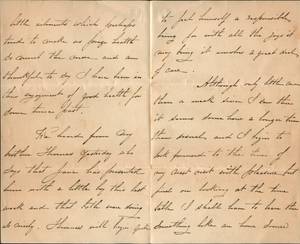 little ailments which perhaps
tend to make us forge health
be cannot the more and am
thankful to say I have been in
the enjoyment of good health for
some time past.
We heard from my
brother Thomas yesterday who
says that Jane has presented
him with a little boy this last
week and that both were doing
so nicely. Thomas will begin
to feel himself a responsible
being for with all the joys it
may bring it involves a great deal
of care.
Although only little more
than a week since I saw thee
it seems some how a longer time
than usual, and I begin to
look forward to the time of
my next visit with pleasure but
find on looking at the time
table I shall have to leave
something like an hour sooner